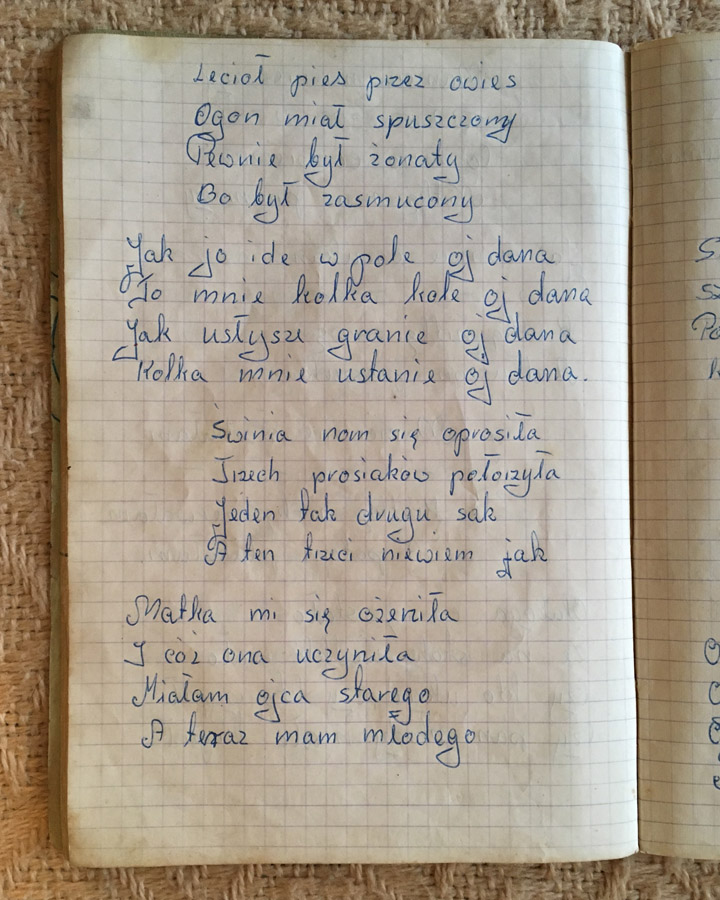 Lecioł pies przez owies
Ogon miał spuszczony
Pewnie był żonaty
Bo był zasmucony
Jak jo ide w pole oj dana
To mnie kolka kole oj dana
Jak usłysze granie oj dana
Kolka mnie ustanie oj dana.
Świnia nom się oprosiła
Trzech prosiaków połozyła
Jeden tak drugu sak
A ten trzeci niewiem jak
Matka mi się ożeniła
I cóż ona uczyniła
Miałam ojca starego
A teraz mam młodego